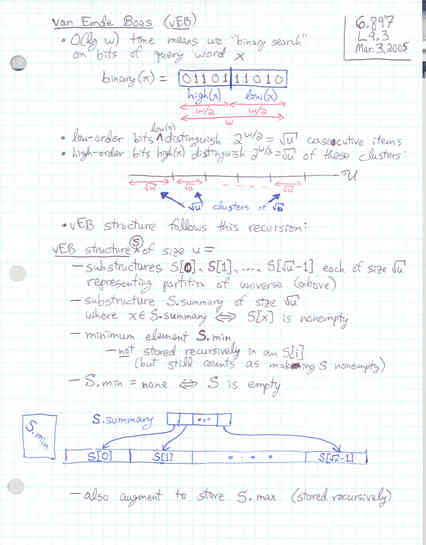 van Emde Boas (vEB)
6.897
L9.3
Mar. 3, 2005
• O(lg w) time means we "binary search"
on bits of query word x
binary(x) = 01101 11010
high(x) low(x)
w/2 w/2
w
• low-order bits low(x) distinguish 2^w/2 = √u consecutive items
• high-order bits high(x) distinguish 2^w/2 = √u of these clusters:
√u √u - - - - √u U
√u clusters of √u
• vEB structure follows this recursion:
vEB structure S of size u =
– substructures S[0], S[1], ..., S[√u-1] each of size √u
representing partition of universe (above)
– substructure S.summary of size √u
where x ∈ S.summary ⇔ S[x] is nonempty
– minimum element S.min
– not stored recursively in an S[i]
(but still counts as making S nonempty)
– S.min = none ⇔ S is empty
S.summary ...
S.min
S[0] S[1] • • • • S[√u-1]
– also augment to store S.max (stored recursively)